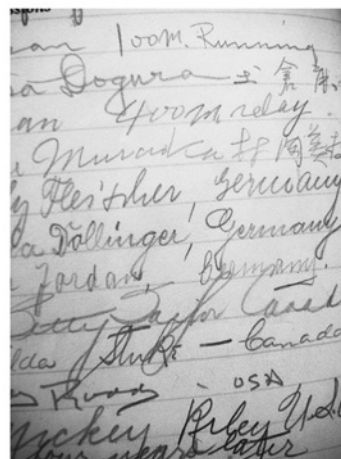 an 100m. Running
a Dogura 土倉麻
an 400m relay.
a Muraoka 村岡美枝
y Fleischer, Germany
la Döllinger, Germany
Jordan, Germany.
Betty Taylor Canad
lda Strike — Canada
USA
Mickey Riley U.S.
four years later